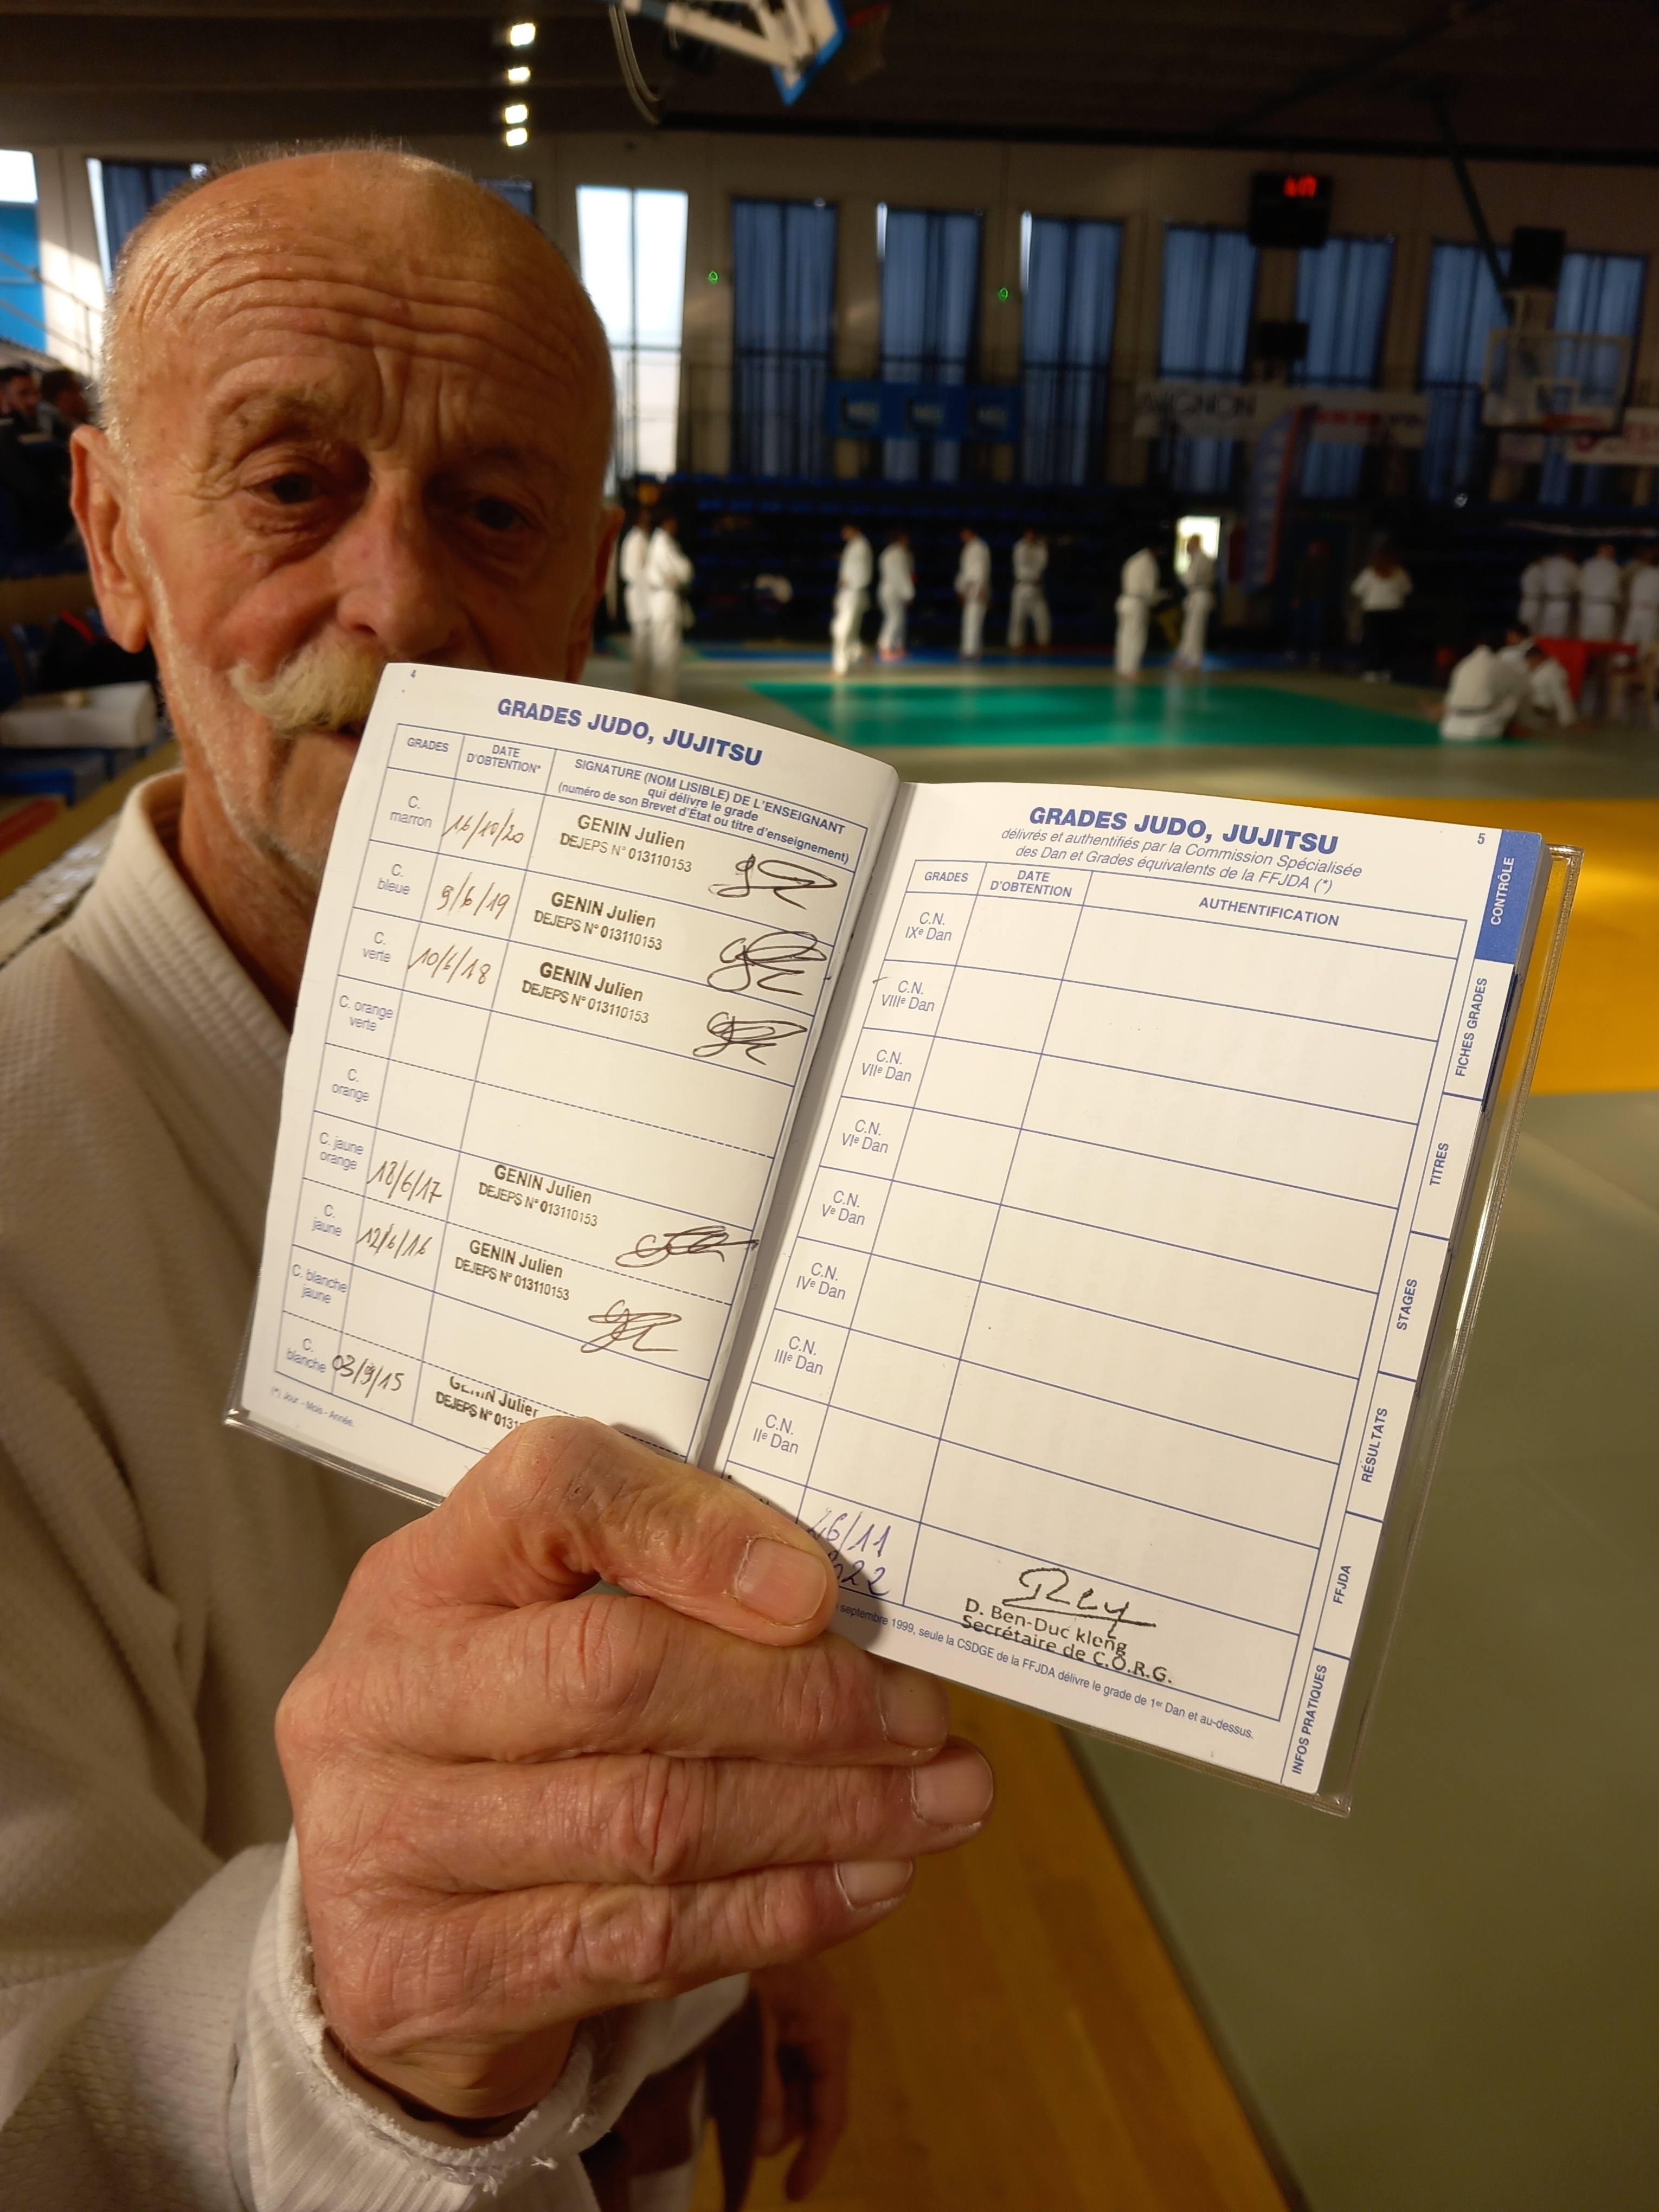 4
GRADES JUDO, JUJITSU
GRADES
DATE
D'OBTENTION*
SIGNATURE (NOM LISIBLE) DE L'ENSEIGNANT
qui délivre le grade
(numéro de son Brevet d'État ou titre d'enseignement)
C.
marron
16/10/20
GENIN Julien
DEJEPS N° 013110153
C.
bleue
9/6/19
GENIN Julien
DEJEPS N° 013110153
C.
verte
10/6/18
GENIN Julien
DEJEPS N° 013110153
C. orange
verte
C.
orange
C. jaune
orange
18/6/17
GENIN Julien
DEJEPS N° 013110153
C.
jaune
12/6/16
GENIN Julien
DEJEPS N° 013110153
C. blanche
jaune
C.
blanche
03/9/15
GENIN Julien
DEJEPS N° 0131
(*) Jour - Mois - Année.
5
GRADES JUDO, JUJITSU
délivrés et authentifiés par la Commission Spécialisée
des Dan et Grades équivalents de la FFJDA (*)
GRADES
DATE
D'OBTENTION
AUTHENTIFICATION
C.N.
IXe Dan
C.N.
VIIIe Dan
C.N.
VIIe Dan
C.N.
VIe Dan
C.N.
Ve Dan
C.N.
IVe Dan
C.N.
IIIe Dan
C.N.
IIe Dan
26/11
2022
D. Ben-Duc kieng
Secrétaire de C.O.R.G.
septembre 1999, seule la CSDGE de la FFJDA délivre le grade de 1er Dan et au-dessus.
CONTRÔLE
FICHES GRADES
TITRES
STAGES
RÉSULTATS
FFJDA
INFOS PRATIQUES
AVIGNON